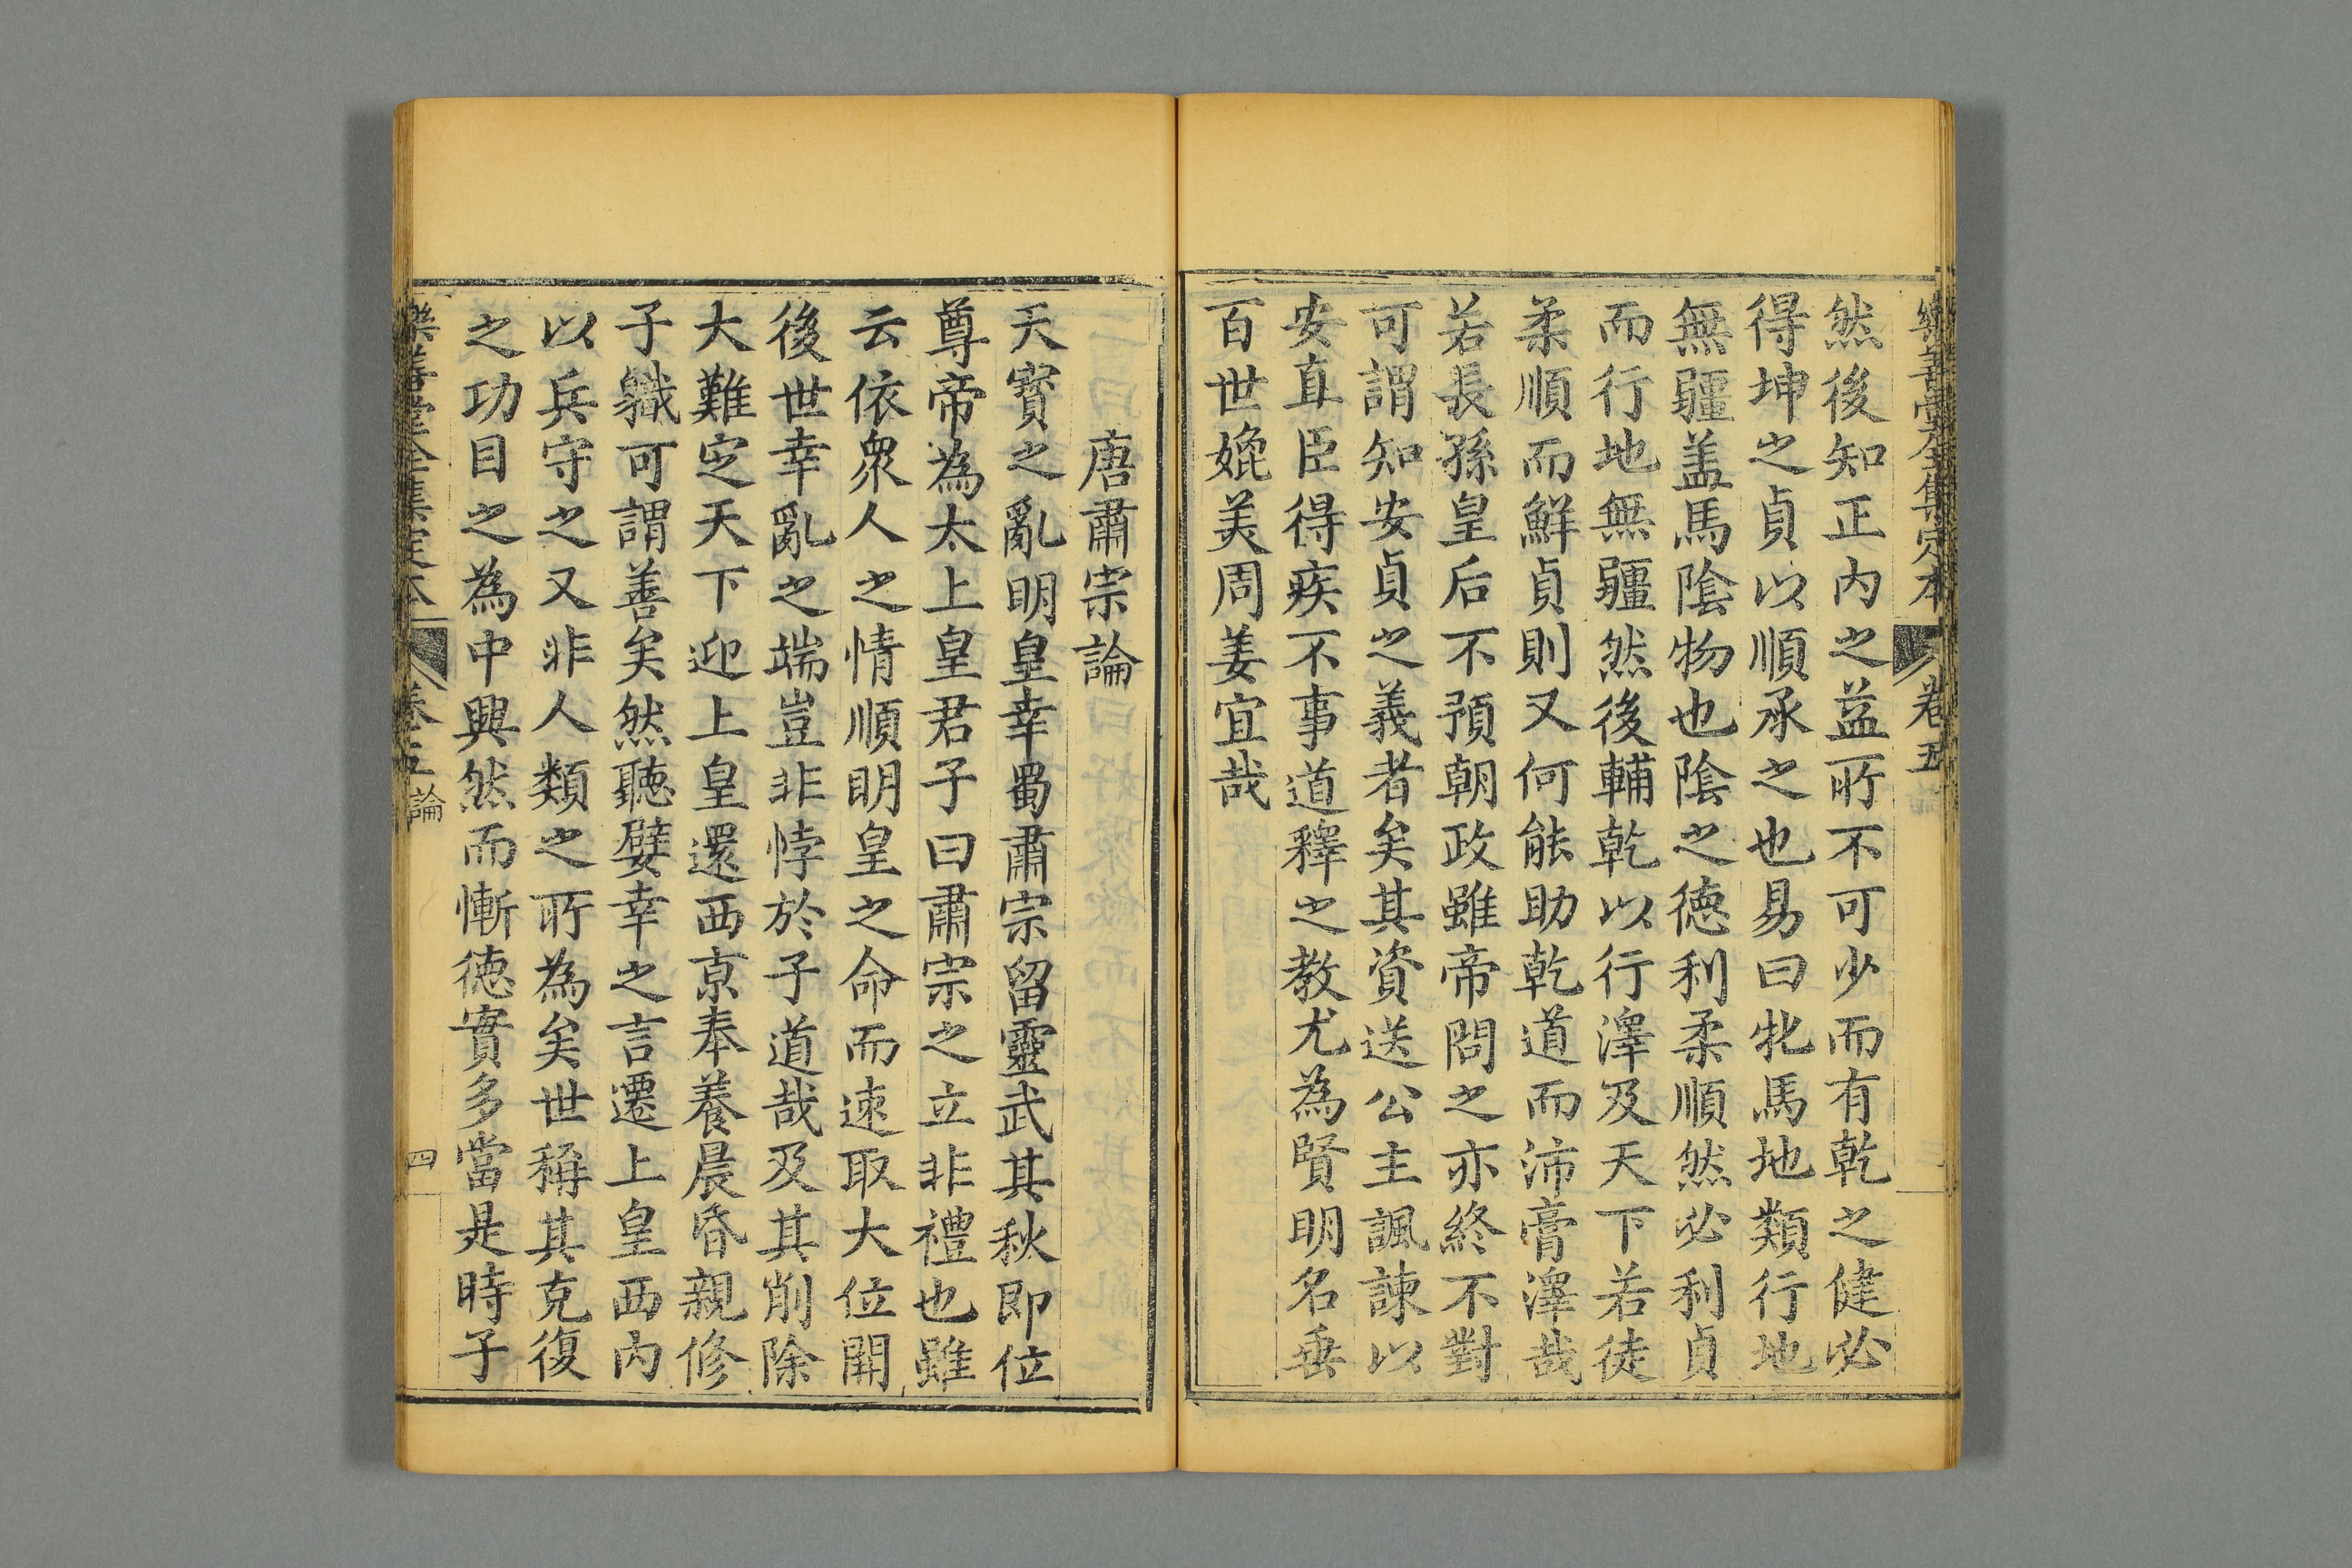 樂善堂全集定本 卷五 論
然後知正内之益所不可少而有乾之健必
得坤之貞以順承之也易曰牝馬地類行地
無疆盖馬陰物也陰之德利柔順然必利貞
而行地無疆然後輔乾以行澤及天下若徒
柔順而鮮貞則又何能助乾道而沛膏澤哉
若長孫皇后不預朝政雖帝問之亦終不對
可謂知安貞之義者矣其資送公主諷諫以
安直臣得疾不事道釋之教尤為賢明名垂
百世媲美周姜宜哉
唐肅宗論
天寳之亂明皇幸蜀肅宗留靈武其秋即位
尊帝為太上皇君子曰肅宗之立非禮也雖
云依衆人之情順明皇之命而速取大位開
後世幸亂之端豈非悖於子道哉及其削除
大難定天下迎上皇還西京奉養晨昏親修
子職可謂善矣然聽嬖幸之言遷上皇西内
以兵守之又非人類之所為矣世稱其克復
之功目之為中興然而慚德實多當是時子
樂善堂全集定本 卷五 論 四